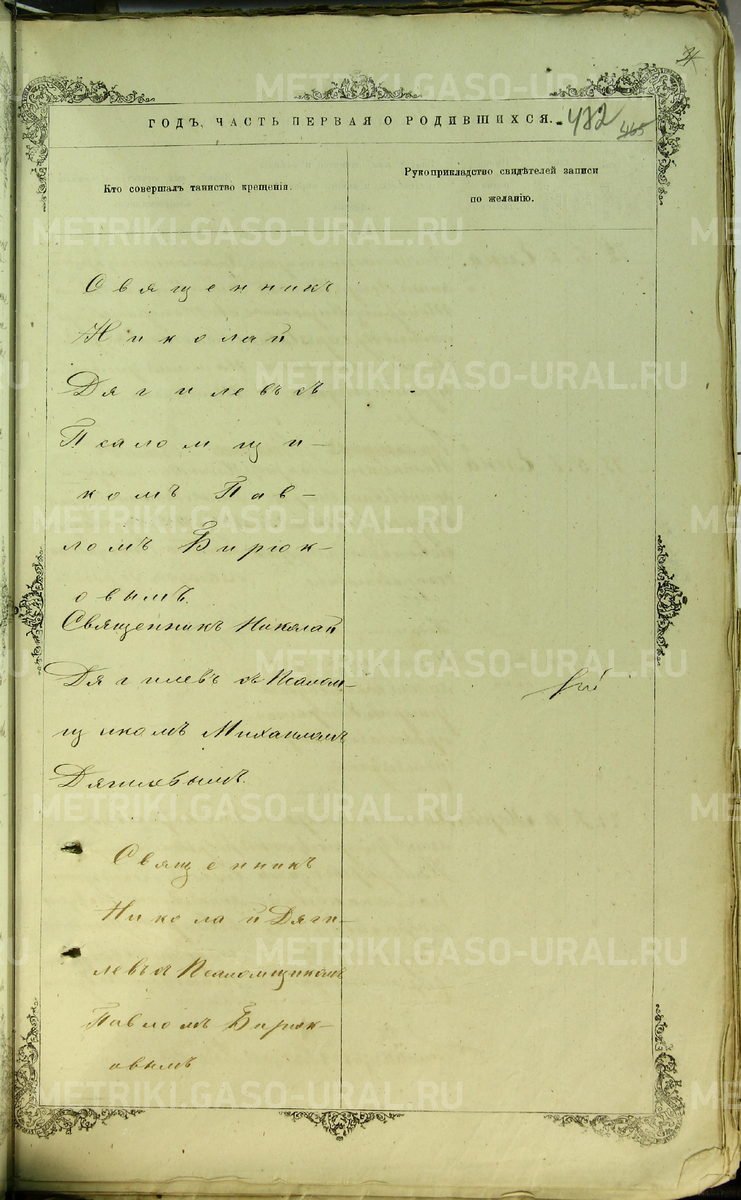 ГОДЪ, ЧАСТЬ ПЕРВАЯ О РОДИВШИХСЯ. 482
465
Кто совершалъ таинство крещенія.
Рукоприкладство свидѣтелей записи
по желанію.
Священникъ
Николай
Дягилевъ съ
Псаломщи-
комъ Пав-
ломъ Бирюк-
овымъ.
Священникъ Николай
Дягилевъ съ Псалом-
щикомъ Михаиломъ
Дягилевымъ.
Священникъ
Николай Дяги-
левъ съ Псаломщикомъ
Павломъ Бирюк-
овымъ
METRIKI.GASO-URAL.RU